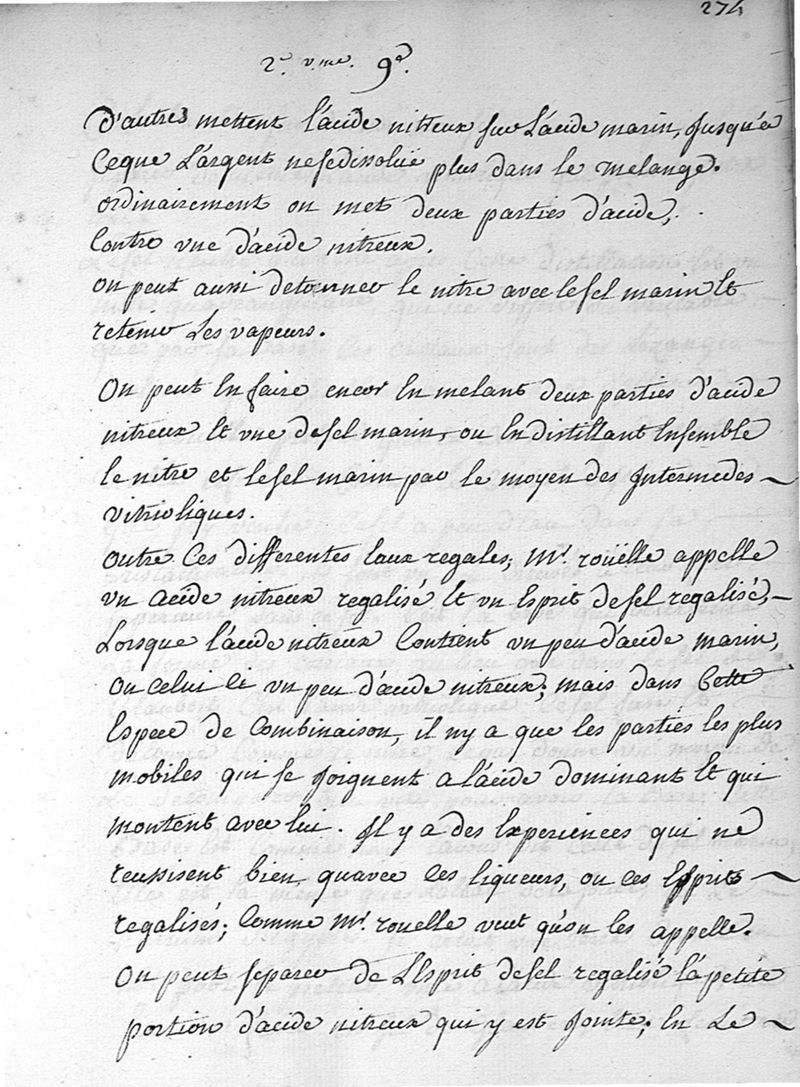 274
2e. v.me. 9e.
D'autres mettent l'acide nitreux sur l'acide marin, jusqu'a
ceque l'argent nesedissolve plus dans le melange.
ordinairement on met deux parties d'acide,
contre vne d'acide nitreux.
on peut aussi detonner le nitre avec lesel marin et
retenir les vapeurs.
On peut en faire encor en melant deux parties d'acide
nitreux et vne desel marin, ou en distillant ensemble
le nitre et lesel marin par le moyen des intermedes
vitrioliques.
outre ces differentes eaux regales, Mr. roüelle appelle
vn acide nitreux regalisé et vn esprit desel regalisé,
lorsque l'acide nitreux contient vn peu d'acide marin,
ou celui ci vn peu d'acide nitreux; mais dans cette
espece de combinaison, il ny a que les parties les plus
mobiles qui se joignent a l'acide dominant et qui
montent avec lui. Il y a des experiences qui ne
reussisent bien quavec ces liqueurs, ou ces esprits
regalisés; comme Mr. rouelle veut qu'on les appelle.
On peut separer de l'esprit desel regalisé la petite
portion d'acide nitreux qui y est jointe, en le